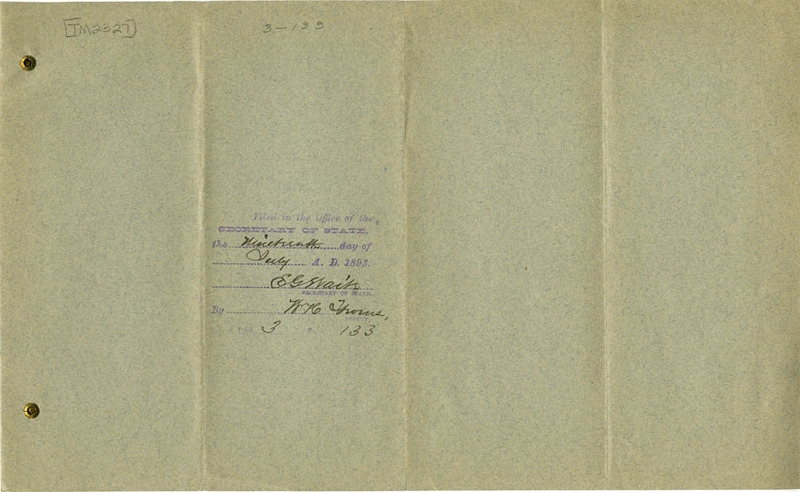 [TM2327]
3-133
Filed in the Office of the
SECRETARY OF STATE,
the Nineteenth day of
July A. D. 1893.
E G Waite
SECRETARY OF STATE.
By W H
3 133